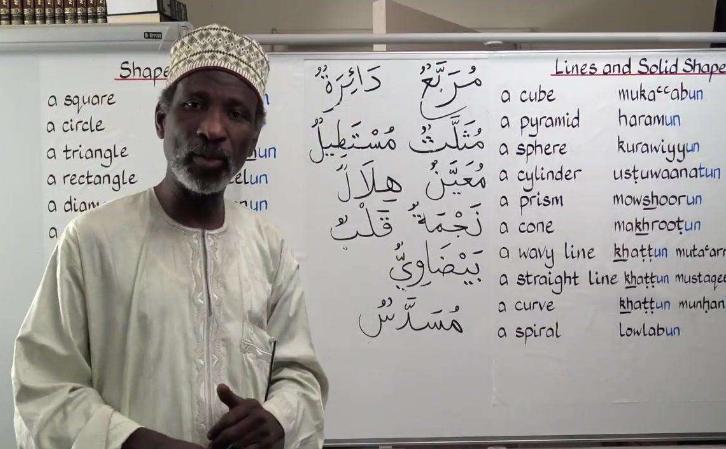 Shape
a square
a circle
a triangle
a rectangle
a diam
a
مُرَبَّعٌ دَائِرَةٌ
مُثَلَّثٌ مُسْتَطِيلٌ
مُعَيَّنٌ هِلَالٌ
نَجْمَةٌ قَلْبٌ
بَيْضَاوِيٌّ
مُسَدَّسٌ
Lines and Solid Shape
a cube mukaᶜᶜabun
a pyramid haramun
a sphere kurawiyyun
a cylinder usṭuwaanatun
a prism mowshoorun
a cone makhrooṭun
a wavy line khaṭṭun mutaᶜarr
a straight line khaṭṭun mustaqee
a curve khaṭṭun munḥan
a spiral Lowlabun